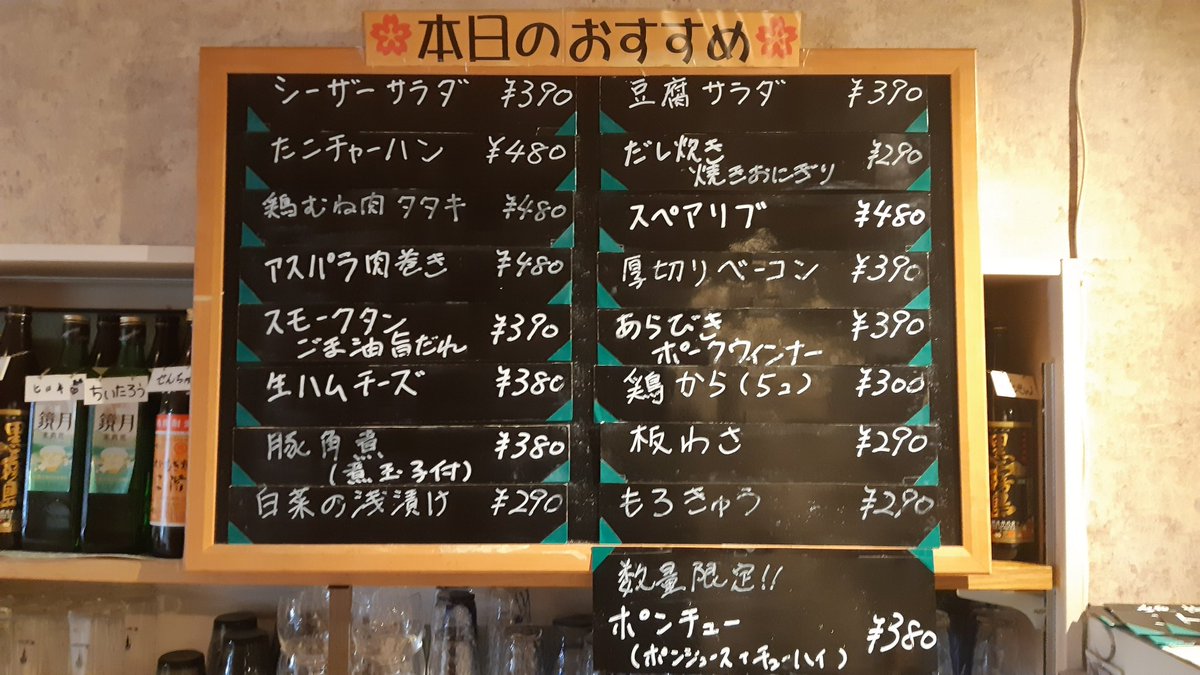 本日のおすすめ
シーザーサラダ ¥390
たこチャーハン ¥480
鶏むね肉タタキ ¥480
アスパラ肉巻き ¥480
スモークタン ¥390
ごま油旨だれ
生ハムチーズ ¥380
豚角煮 ¥380
(煮玉子付)
白菜の浅漬け ¥290
豆腐サラダ ¥390
だし炊き ¥290
焼きおにぎり
スペアリブ ¥480
厚切りベーコン ¥390
あらびき ¥390
ポークウィンナー
鶏から(5コ) ¥300
板わさ ¥290
もろきゅう ¥290
数量限定!!
ポンチュー ¥380
(ポンジュースイチューハイ)
ヒロキ
ちいたろう
鏡月
鏡月
黒霧島